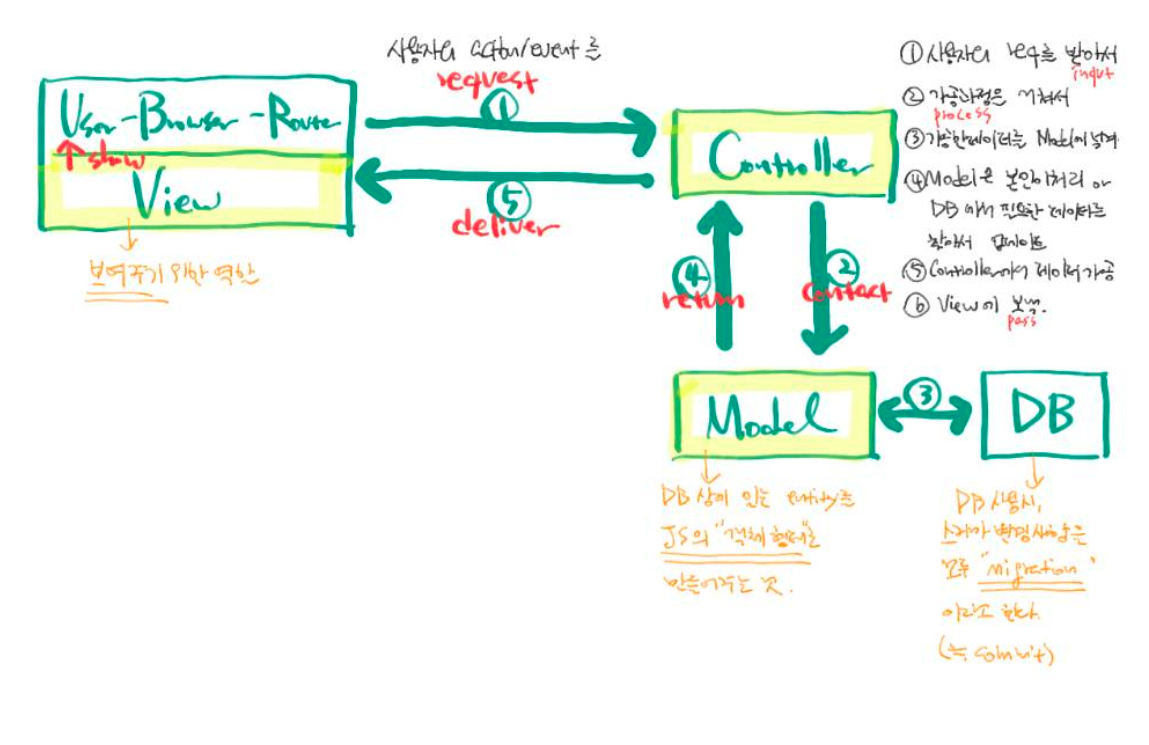 사용자의 action/event를
request
①
User-Browser-Route
show
View
보여주기 위한 역할
⑤
deliver
Controller
④
return
②
contact
Model
③
DB
DB 상에 있는 entity를
JS의 "객체 형태"로
만들어주는 것.
DB 사용시,
스키마 변경사항은
모두 "migration"
이라고 한다.
(≒ commit)
① 사용자의 req를 받아서
input
② 가공과정을 거쳐서
process
③ 가공한 데이터를 Model에 넘겨
④ Model은 본인이 처리 or
DB에서 필요한 데이터를
찾아서 업데이트
⑤ Controller에서 데이터 가공
⑥ View에 보냄.
pass